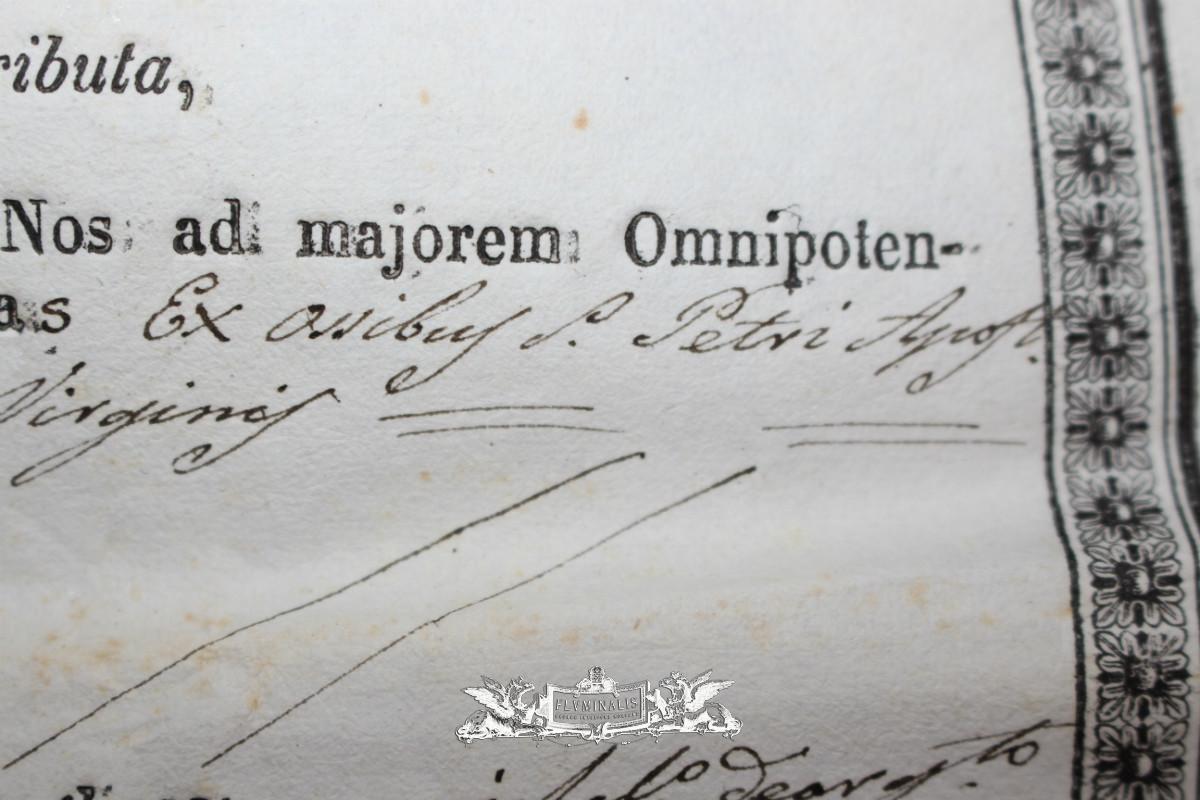 ributa,
Nos ad majorem Omnipoten-
as Ex ossibus S. Petri Apost.
Virginis
FLVMINALIS
dearg.to